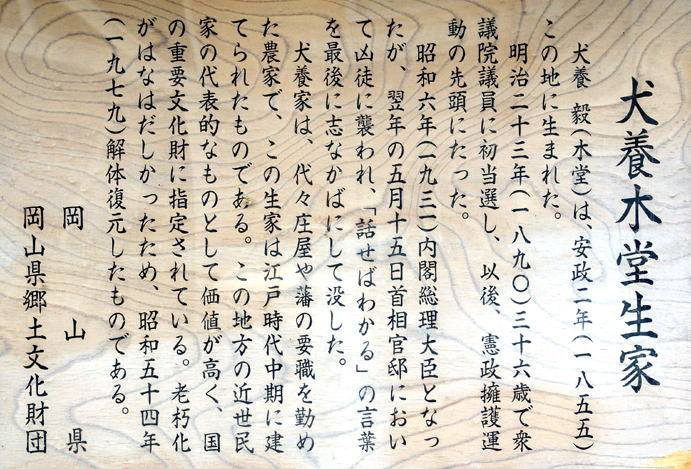 犬養木堂生家
犬養　毅(木堂)は、安政二年(一八五五)
この地に生まれた。
明治二十三年(一八九〇)三十六歳で衆
議院議員に初当選し、以後、憲政擁護運
動の先頭にたった。
昭和六年(一九三一)内閣総理大臣となっ
たが、翌年の五月十五日首相官邸におい
て凶徒に襲われ、「話せばわかる」の言葉
を最後に志なかばにして没した。
犬養家は、代々庄屋や藩の要職を勤め
た農家で、この生家は江戸時代中期に建
てられたものである。この地方の近世民
家の代表的なものとして価値が高く、国
の重要文化財に指定されている。老朽化
がはなはだしかったため、昭和五十四年
(一九七九)解体復元したものである。
岡山県
岡山県郷土文化財団